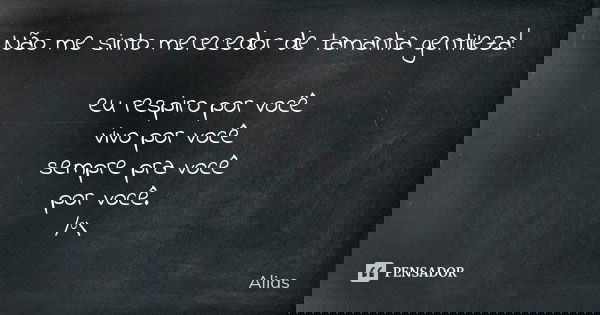 Não me sinto merecedor de tamanha gentileza!
eu respiro por você
vivo por você
sempre pra você
por você.
/s;
PENSADOR
Alias